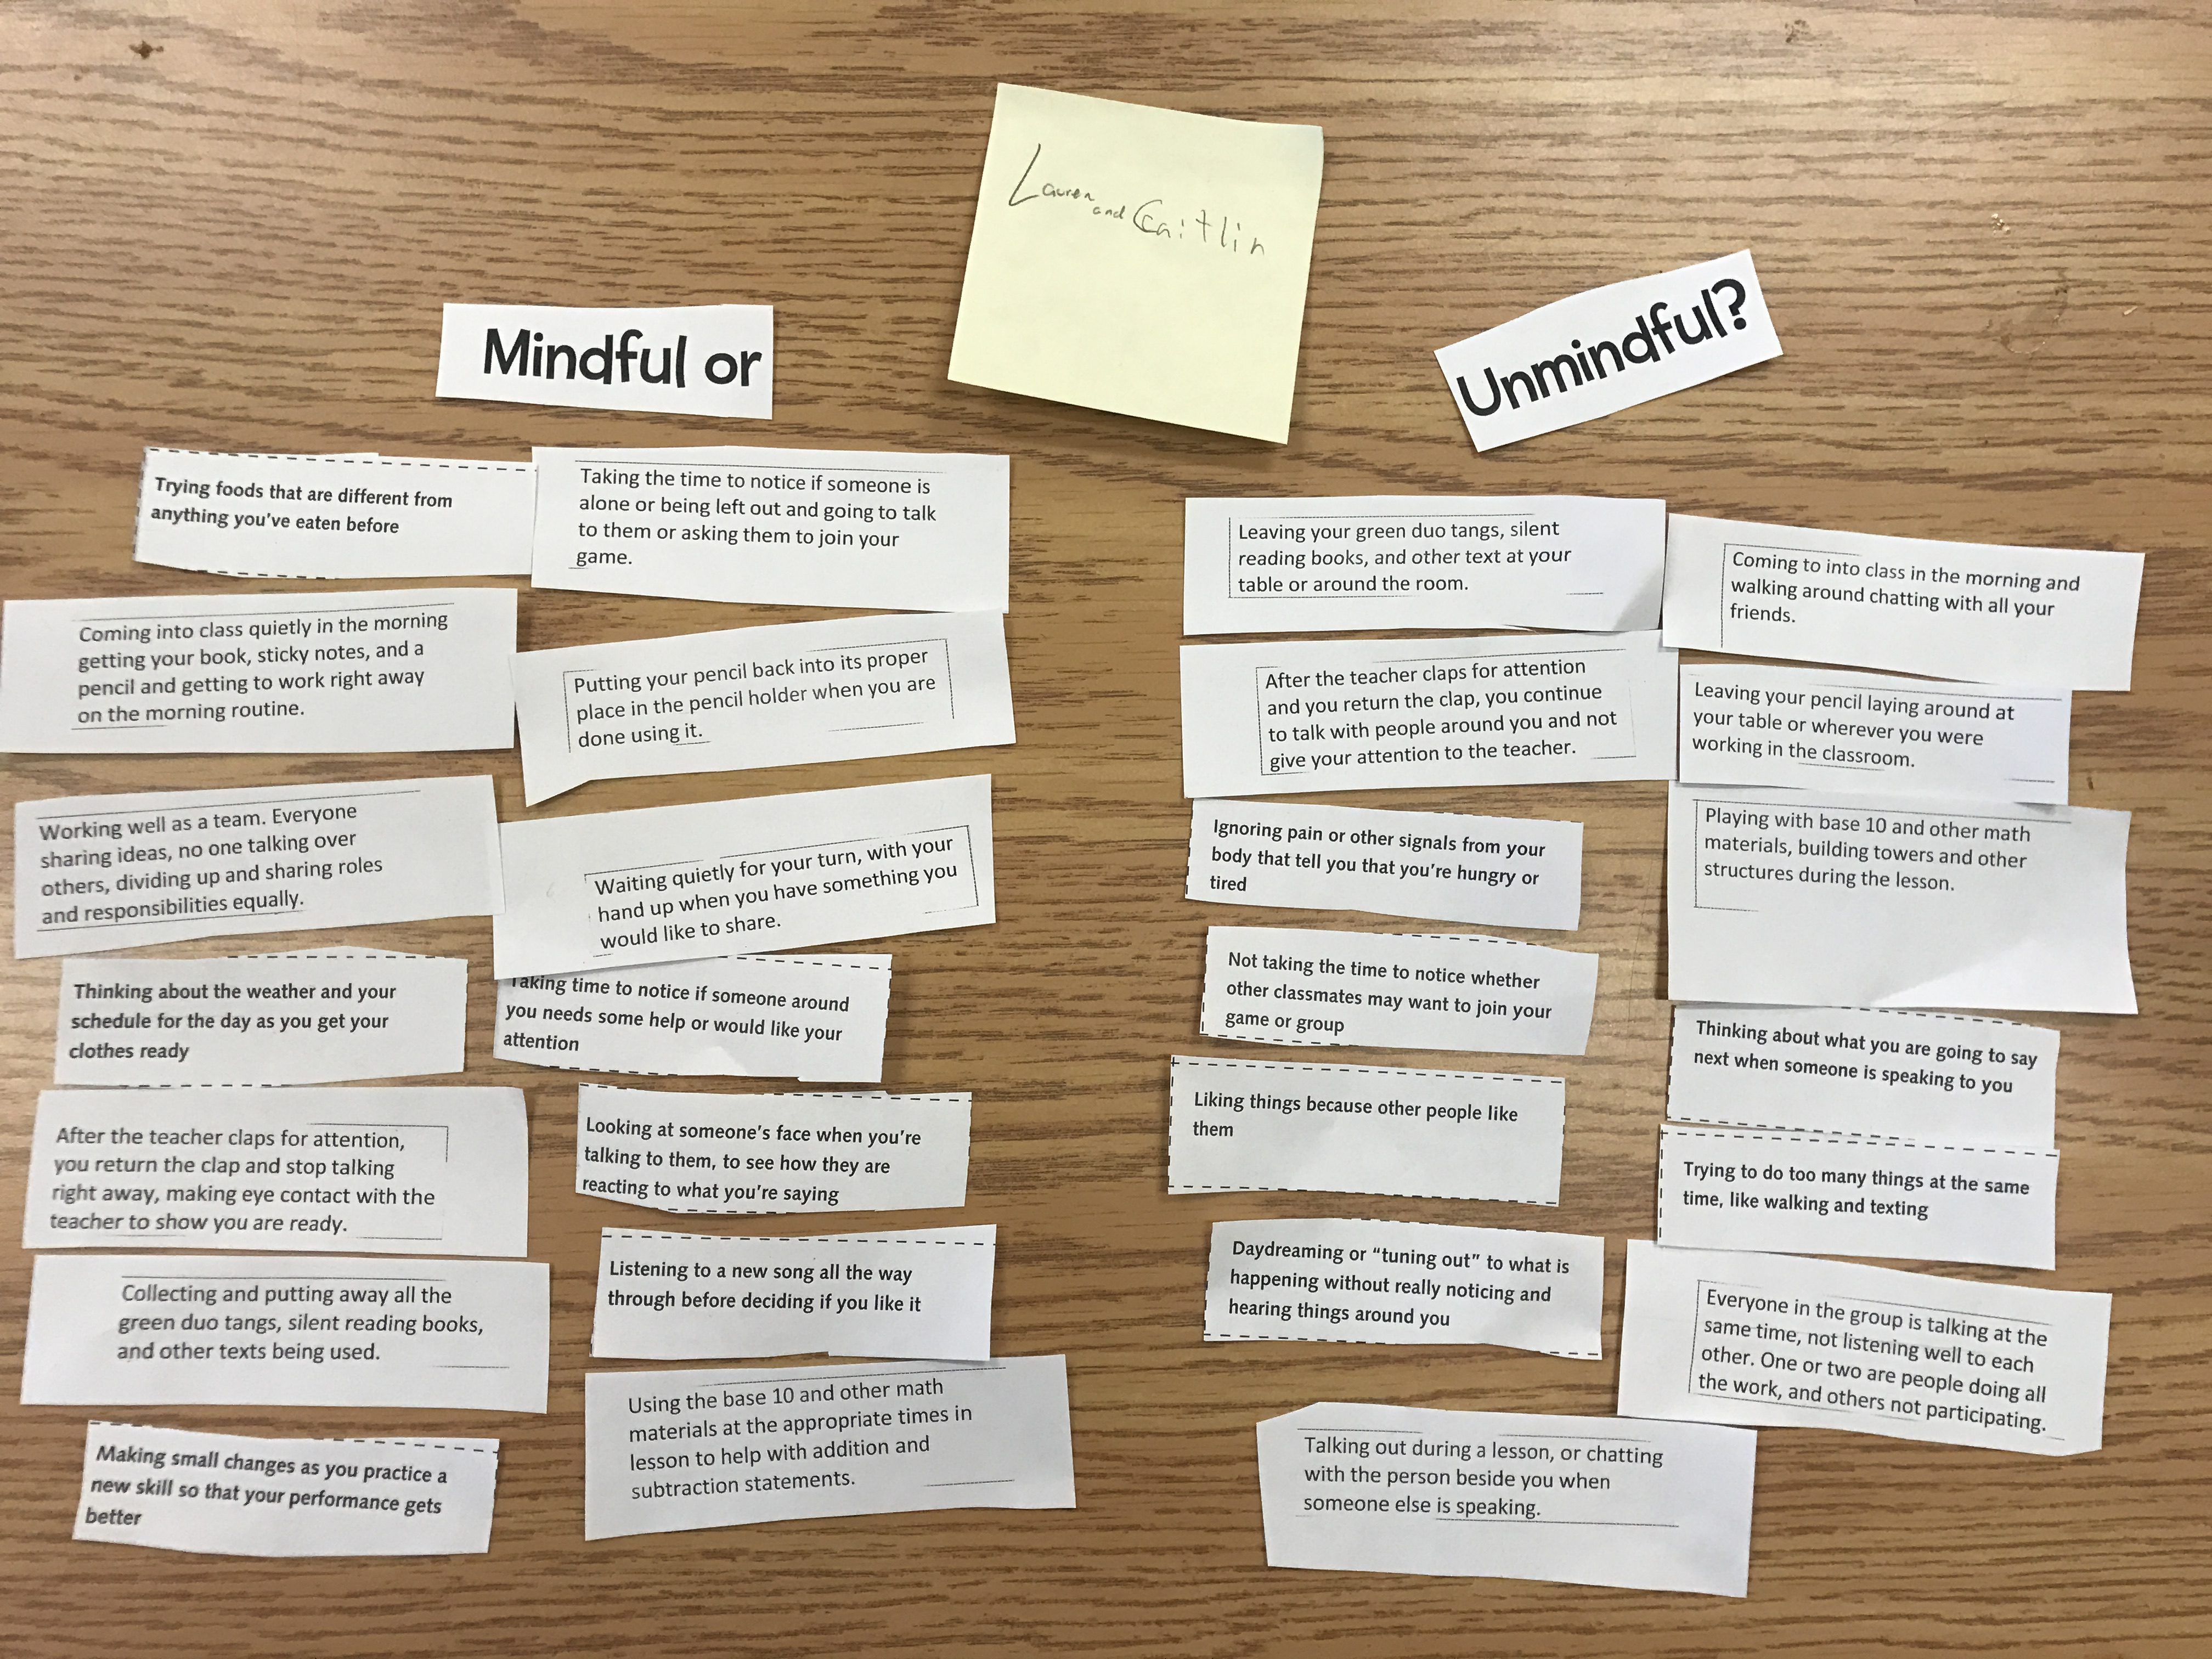 Lauren and Caitlin
Mindful or
Unmindful?
Trying foods that are different from
anything you've eaten before
Taking the time to notice if someone is
alone or being left out and going to talk
to them or asking them to join your
game.
Coming into class quietly in the morning
getting your book, sticky notes, and a
pencil and getting to work right away
on the morning routine.
Putting your pencil back into its proper
place in the pencil holder when you are
done using it.
Working well as a team. Everyone
sharing ideas, no one talking over
others, dividing up and sharing roles
and responsibilities equally.
Waiting quietly for your turn, with your
hand up when you have something you
would like to share.
Thinking about the weather and your
schedule for the day as you get your
clothes ready
Taking time to notice if someone around
you needs some help or would like your
attention
After the teacher claps for attention,
you return the clap and stop talking
right away, making eye contact with the
teacher to show you are ready.
Looking at someone's face when you're
talking to them, to see how they are
reacting to what you're saying
Collecting and putting away all the
green duo tangs, silent reading books,
and other texts being used.
Listening to a new song all the way
through before deciding if you like it
Making small changes as you practice a
new skill so that your performance gets
better
Using the base 10 and other math
materials at the appropriate times in
lesson to help with addition and
subtraction statements.
Leaving your green duo tangs, silent
reading books, and other text at your
table or around the room.
Coming to into class in the morning and
walking around chatting with all your
friends.
After the teacher claps for attention
and you return the clap, you continue
to talk with people around you and not
give your attention to the teacher.
Leaving your pencil laying around at
your table or wherever you were
working in the classroom.
Ignoring pain or other signals from your
body that tell you that you're hungry or
tired
Playing with base 10 and other math
materials, building towers and other
structures during the lesson.
Not taking the time to notice whether
other classmates may want to join your
game or group
Thinking about what you are going to say
next when someone is speaking to you
Liking things because other people like
them
Trying to do too many things at the same
time, like walking and texting
Daydreaming or "tuning out" to what is
happening without really noticing and
hearing things around you
Everyone in the group is talking at the
same time, not listening well to each
other. One or two are people doing all
the work, and others not participating.
Talking out during a lesson, or chatting
with the person beside you when
someone else is speaking.